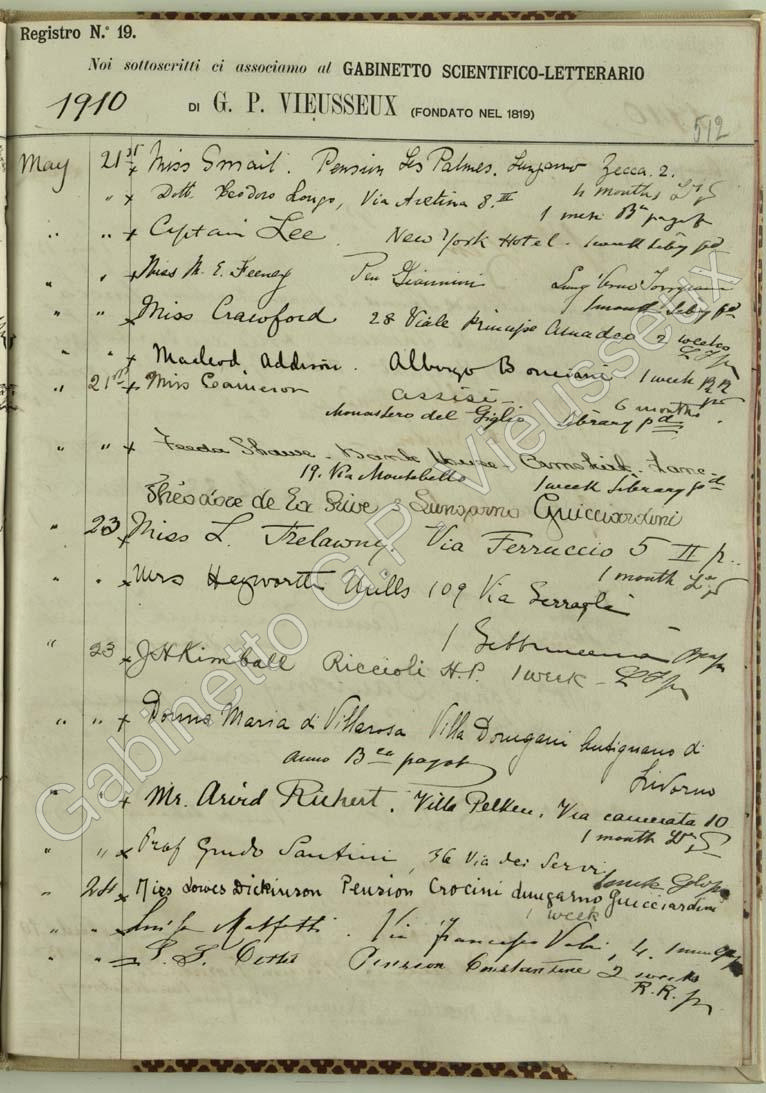 Registro N.º 19.
Noi sottoscritti ci associamo al GABINETTO SCIENTIFICO-LETTERARIO
1910 DI G. P. VIEUSSEUX (FONDATO NEL 1819)
512
May 21st Miss Smail. Pension Les Palmes. Lungarno Zecca. 2.
4 months
" Dott. Teodoro Longo, Via Aretina 8. II
1 mese Bca pagato
" " Captain Lee. New York Hotel. 1 week Liby pd
" " Miss M. E. Feeney Pen Giannini Lung'Arno Torrigiani
1 month Liby pd
" Miss Crawford 28 Viale Principe Amadeo 2 weeks
" " Macleod Addison. Albergo Bonciani. 1 week RR
" 21 Miss Cameron Assisi
6 months
Monastero del Giglio Library pd
" " Shawe. Bank House. Ormskirk. Lanc
19. Via Montebello 1 week Library pd
Théodore de La Rive 8 Lungarno Guicciardini
" 23 Miss L. Trelawny. Via Ferruccio 5 II p.
1 month
" " Mrs Heyworth Mills 109 Via Serragli
1
" 23 J H Kimball Riccioli H.P. 1 week
" " Donna Maria di Villarosa Villa Antignano di
anno Bca pagato Livorno
" " Mr. Arvid Richert. Villa Via camerata 10
1 month
" " Prof Guido Santini, 36 Via dei Servi
" 24 Miss Lowes Dickinson Pension Crocini Lungarno Guicciardini
1 week
" " Luisa Maffetti. Via Francesco 4.
" " Pension Constantine 2 weeks
R.R.
Gabinetto G.P. Vieusseux